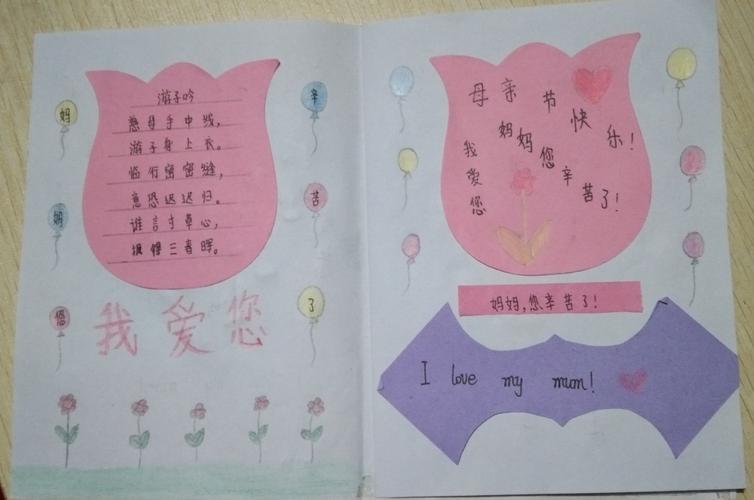 游子吟
慈母手中线,
游子身上衣。
临行密密缝,
意恐迟迟归。
谁言寸草心,
报得三春晖。
妈
妈
您
辛
苦
了
我爱您
母亲节快乐!
妈妈您辛苦了!
我爱您
妈妈,您辛苦了!
I love my mum!